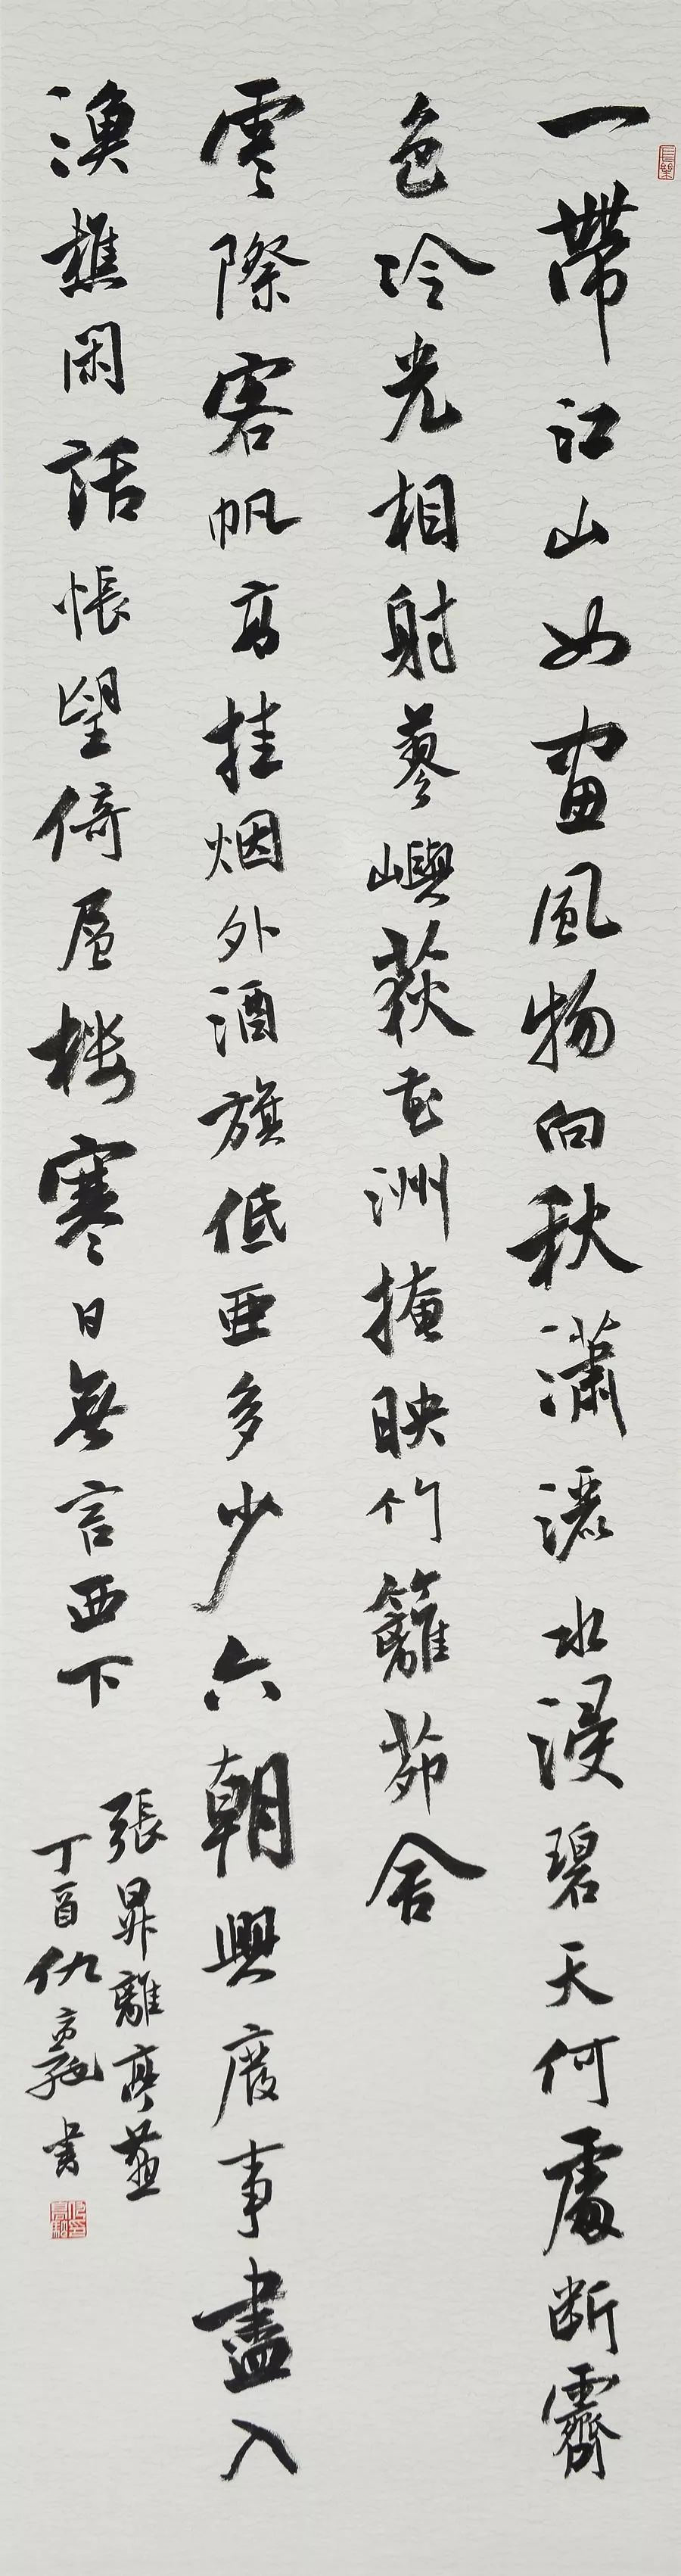 一帶江山如畫風物向秋瀟灑水浸碧天何處断霽
色冷光相射蓼嶼荻花洲掩映竹籬茆舍
雲際客帆高挂烟外酒旗低亞多少六朝興廢事盡入
漁樵閑話悵望倚層樓寒日無言西下
張昇離亭燕
丁酉仇高馳書